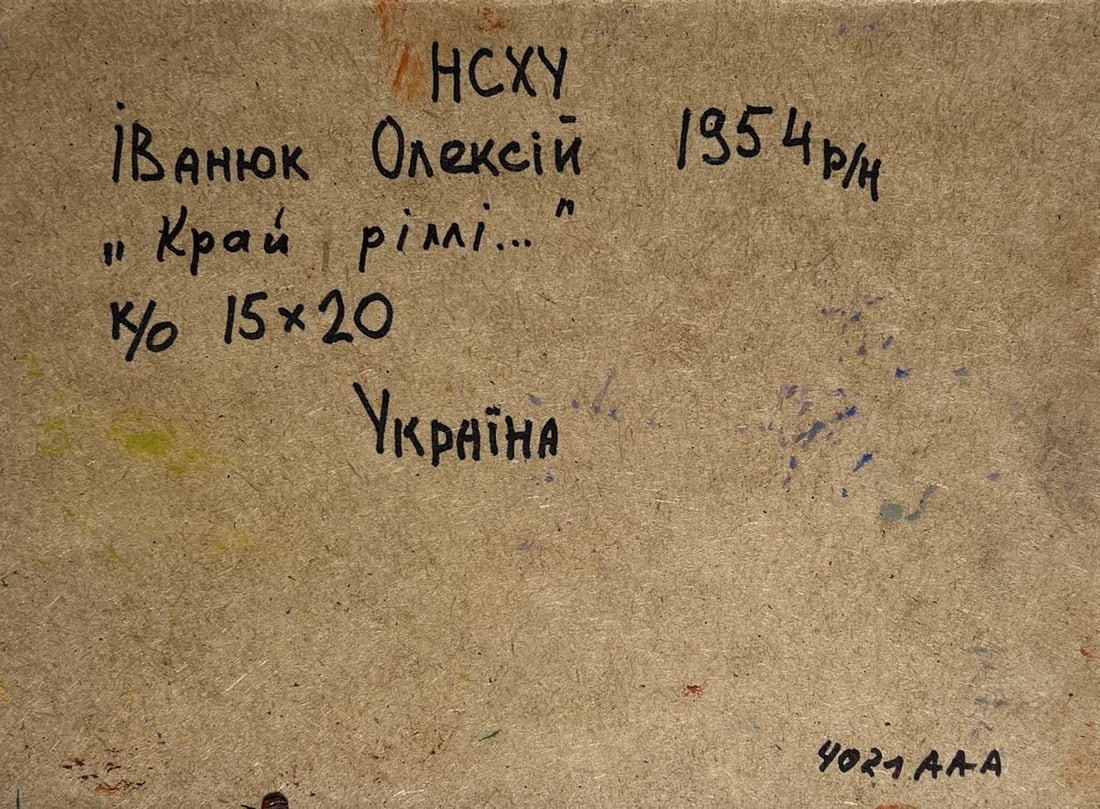 НСХУ
Іванюк Олексій 1954 р/н
„Край ріллі..."
к/о 15×20
Україна
4021 AAA